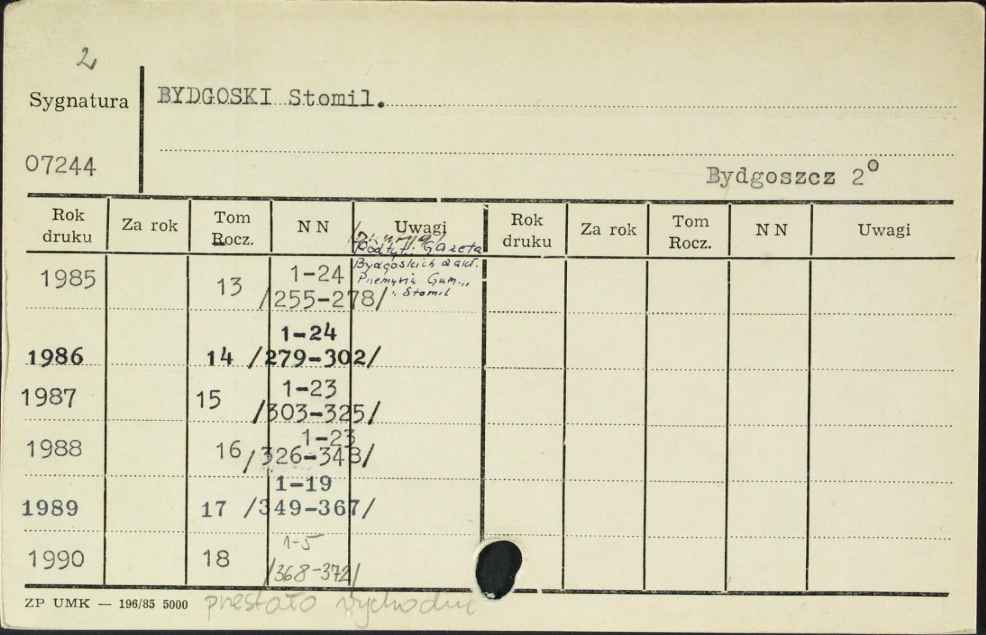 2
Sygnatura BYDGOSKI Stomil.
07244
Bydgoszcz 2°
Rok druku Za rok Tom Rocz. N N Uwagi Rok druku Za rok Tom Rocz. N N Uwagi
Podtyt. Gazeta
Bydgoskich Zakł.
Przemysłu Gum.
Stomil
1985 13 1-24 /255-278/
1986 14 1-24 /279-302/
1987 15 1-23 /303-325/
1988 16 1-23 /326-348/
1989 17 1-19 /349-367/
1990 18 1-5 /368-372/
ZP UMK — 196/85 5000 przestało wychodzić